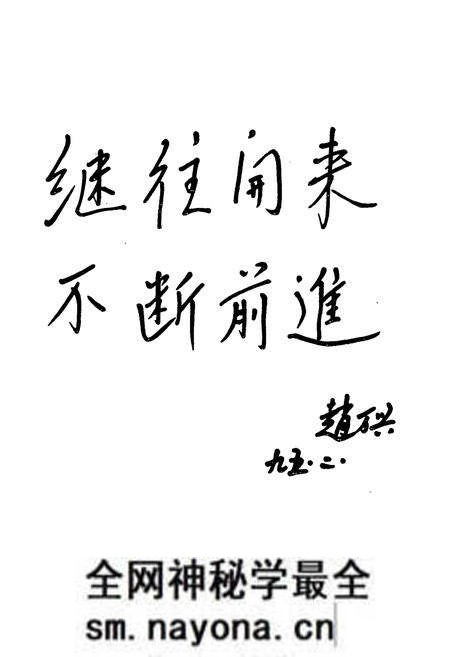 继往开来
不断前進
趙万兴
九五.二.
全网神秘学最全
sm.nayona.cn